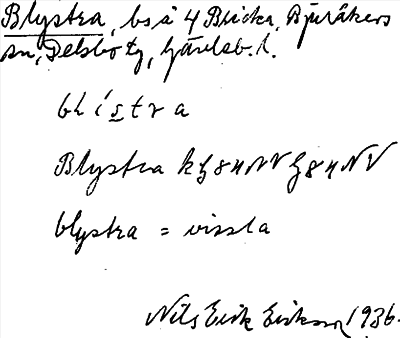 Blystra, bs å 4 Bricka, Bjuråkers
sn, Delsbo tg, Gävleb. l.
blístra
Blystra kg 84 NV g 84 NV
blystra = vissla
Nils Erik Eriksson 1936.